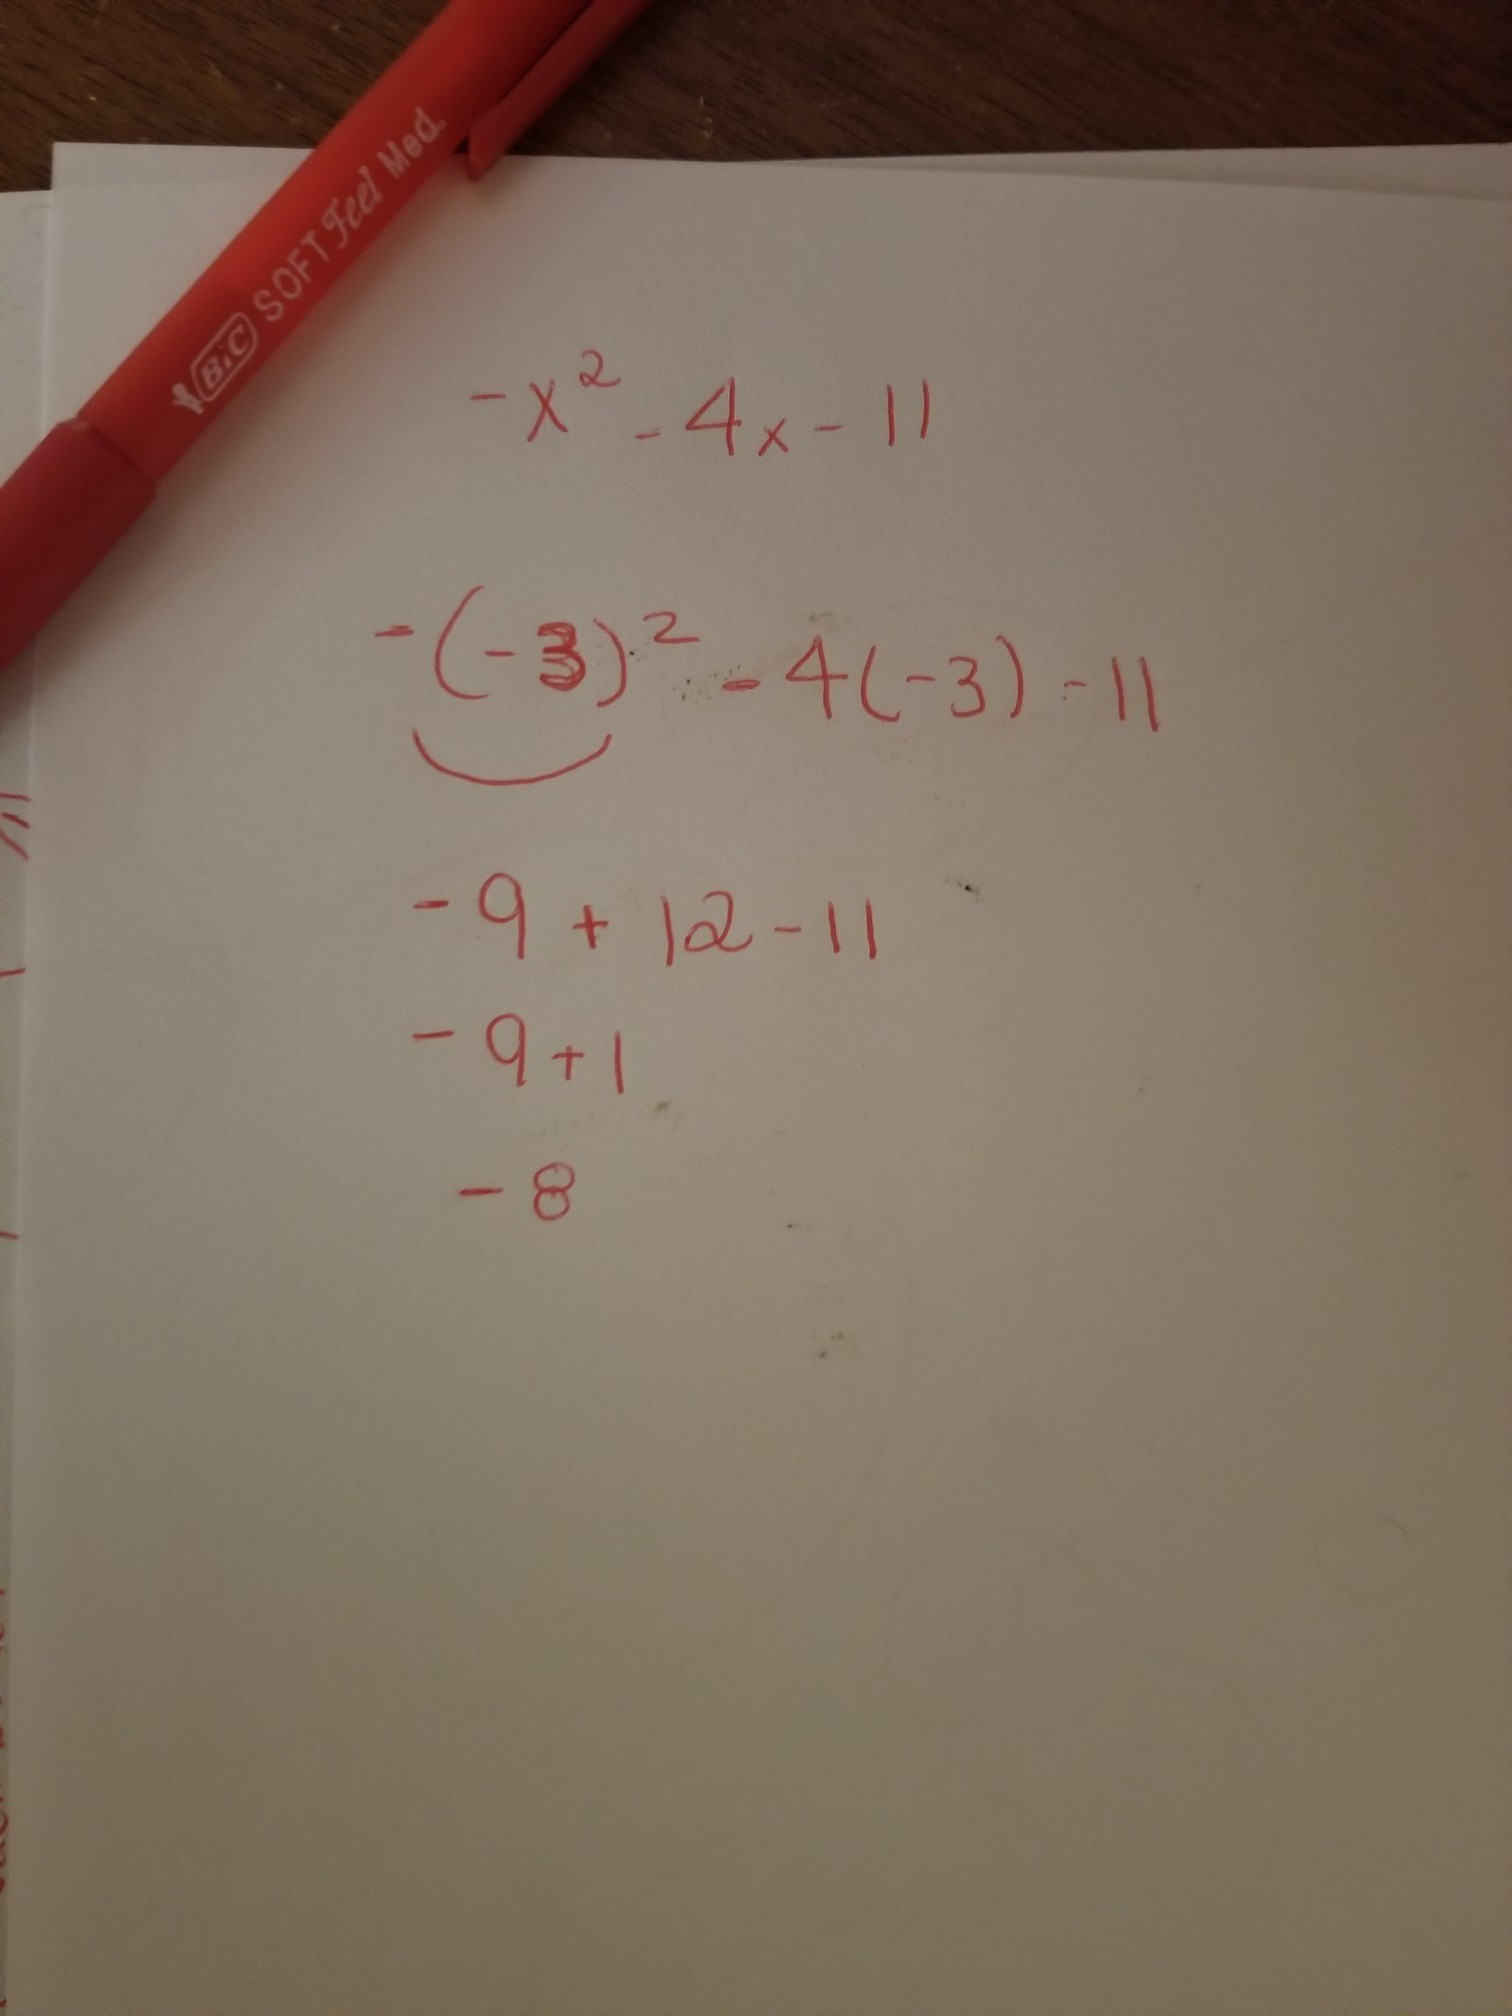 BiC SOFT Feel Med.
-x² - 4x - 11
-(-3)² - 4(-3) - 11
-9 + 12 - 11
-9 + 1
-8